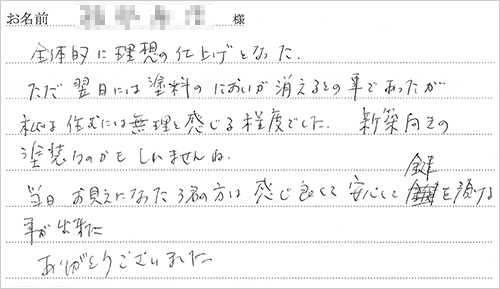 お名前 様
全体的に理想の仕上げとなった.
ただ翌日には塗料のにおいが消えるとの事であったが
私は住むには無理と感じる程度でした. 新築向きの
塗装なのかもしれませんね.
当日お見えになった3名の方は感じ良くて安心して鍵を預ける
事が出来た
ありがとうございました